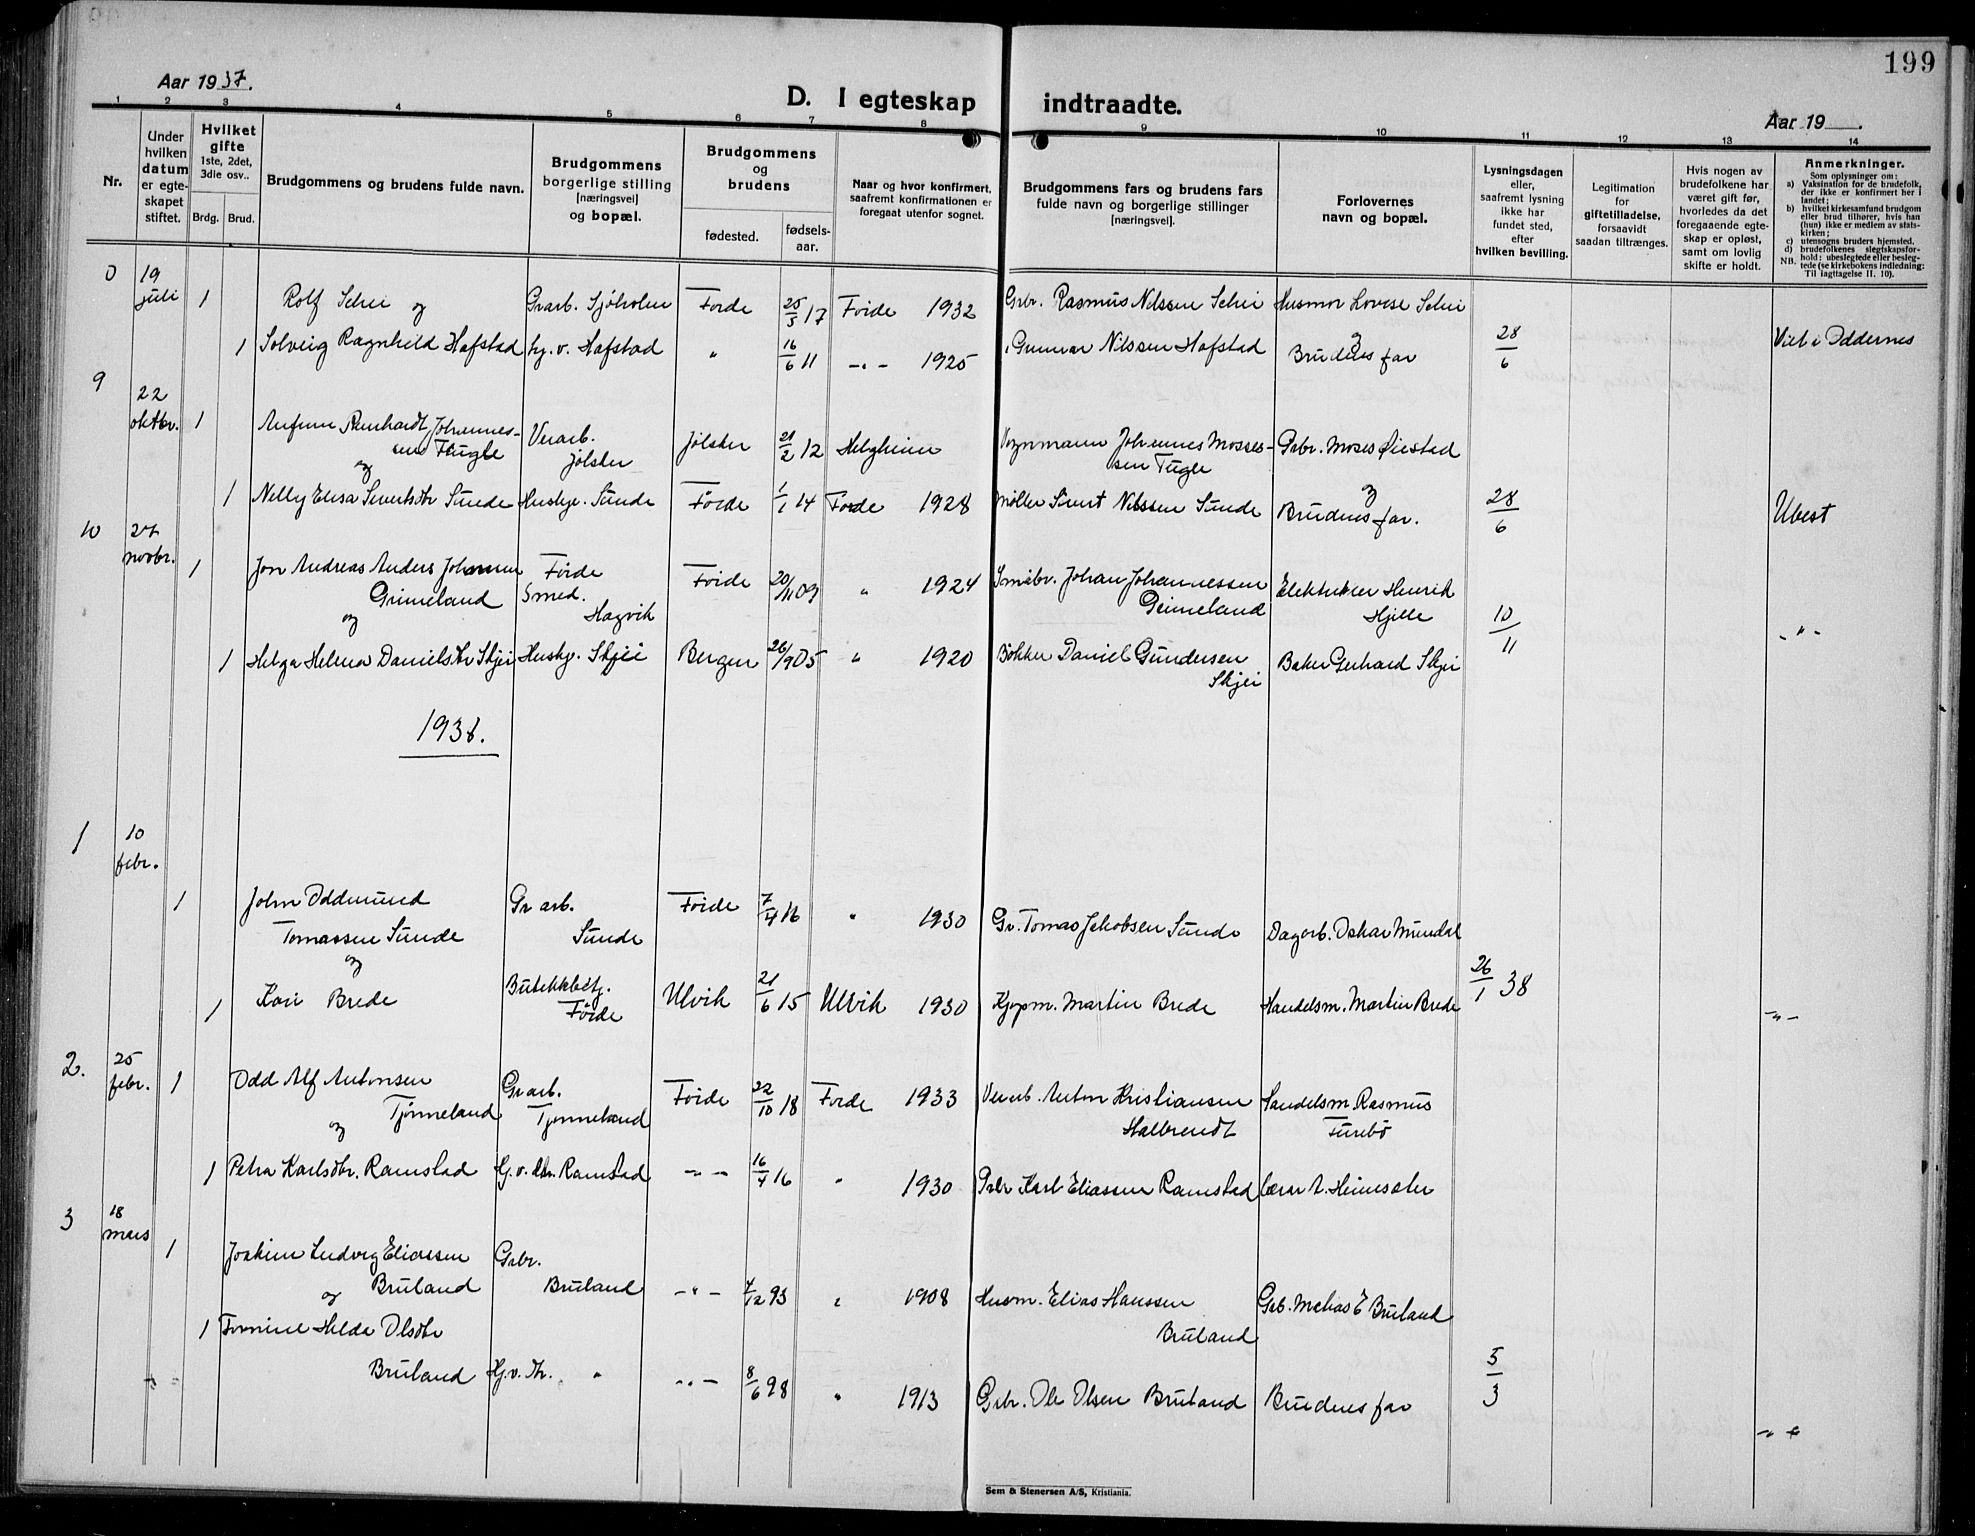 199
Aar 1937.
D. I egteskap indtraadte.
Aar 19
1 2 3 4 5 6 7 8 9 10 11 12 13 14
Nr.
Under hvilken datum er egteskapet stiftet.
Hvilket gifte 1ste, 2det, 3die osv..
Brdg. Brud.
Brudgommens og brudens fulde navn.
Brudgommens borgerlige stilling [næringsvei] og bopæl.
Brudgommens og brudens
fødested. fødsels-aar.
Naar og hvor konfirmert, saafremt konfirmationen er foregaat utenfor sognet.
Brudgommens fars og brudens fars fulde navn og borgerlige stillinger [næringsvei].
Forlovernes navn og bopæl.
Lysningsdagen eller, saafremt lysning ikke har fundet sted, efter hvilken bevilling.
Legitimation for giftetilladelse, forsaavidt saadan tiltrænges.
Hvis nogen av brudefolkene har været gift før, hvorledes da det foregaaende egteskap er opløst, samt om lovlig skifte er holdt.
Anmerkninger.
Som oplysninger om:
a) Vaksination for de brudefolk, der ikke er konfirmert her i landet;
b) hvilket kirkesamfund brudgom eller brud tilhører, hvis han (hun) ikke er medlem av statskirken;
c) utensogns bruders hjemsted,
d) brudefolkenes slegtskapsforhold: ubeslegtede eller beslegtede (se kirkebokens indledning: Til iagttagelse II. 10).
NB.
19 juli 1 Rolf Schei og Grarb. Sjøholen Førde 25/5 17 Førde 1932 Grbr. Rasmus Nilssen Schei Husmor Lovise Schei
1 Solveig Ragnhild Hafstad hj. v. Hafstad " 16/6 11 -"- 1925 Gunnar Nilssen Hafstad og Brudens far 28/6 Viet i Oddernes
9 22 oktbr. 1 Reinhardt Johannes-
sen Fugle Jølster Jølster 21/2 12 Helgheim Johannes Mosses-
sen Fugle Grbr. Moses Øiestad
og
1 Nelly Elisa Sivertsdtr Sunde Hushj. Sunde Førde 1/1 14 Førde 1928 Møller Sivert Nilssen Sunde og Brudens far. 28/6 Ubesl
10 27 novbr. 1 Jon Andreas Anders Johannsen Førde Førde 20/11 09 " 1924 Småbr. Johan Johannessen Elektriker Henrik
Grimeland Smed. Grimeland Hjelle
og Hagvik 10/11 -"-
1 Helga Helena Danielsdtr Skjei Hushj. Skjei Bergen 26/9 05 " 1920 Bøkker Daniel Gundersen Baker Gerhard Skjei
Skjei
1938.
1 10 febr.
1 John Oddmund Gr arb. Førde 7/4 16 " 1930 Gr. Tomas Jakobsen Sunde Dagarb. Oskar Mundal
Tomassen Sunde Sunde
og
1 Kari Brede Butikkbetj. Ulvik 21/6 15 Ulvik 1930 Kjøpm. Martin Brede Handelsm. Martin Brede 26/1 38 -"-
Førde
2. 25 febr. 1 Odd Alf Antonsen Gr arb. Førde 22/10 18 Førde 1933 Anton Kristiansen Handelsm. Rasmus
Tjønneland Tjønneland Halbrendt Furebø
og
1 Petra Karlsdtr. Ramstad Hj. v. dtr. Ramstad -"- 16/4 16 " 1930 Grbr Karl Eliassen Ramstad
3 18 mars 1 Joakim Ludvig Eliassen Grbr.
og Bruland Bruland -"- 4/12 93 " 1908 Husm. Elias Hanssen Grb. E Bruland
1 Tomine Helde Olsdtr Bruland
Bruland Hj. v. dtr. " -"- 8/6 98 " 1913 Grbr. Ole Olsen Bruland Brudens far 5/3 -"-
Sem & Stenersen A/S, Kristiania.